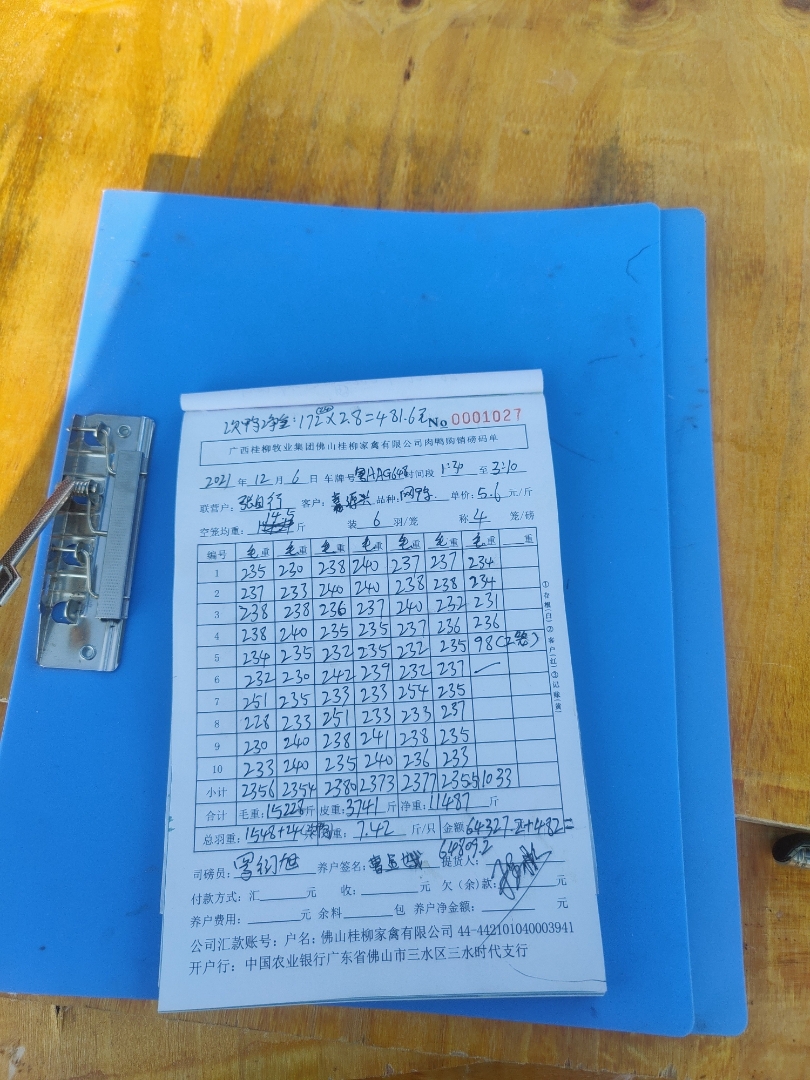 次鸭净重:172×2.8=481.6元 No 0001027
广西桂柳牧业集团佛山桂柳家禽有限公司肉鸭购销磅码单
2021 年 12 月 6 日 车牌号 时间段 1:30 至 3:10
联营户: 客户: 品种: 单价: 5.6 元/斤
空笼均重: 14.5 斤 装 6 羽/笼 称 4 笼/磅
编号 毛重 毛重 毛重 毛重 毛重 毛重 毛重 重
1 235 230 238 240 237 237 234
2 237 233 240 240 238 238 234
3 238 238 236 237 240 232 231
4 238 240 235 235 237 236 236
5 234 235 232 235 232 235 98(2笼)
6 232 230 242 239 232 237
7 251 235 233 233 254 235
8 228 233 251 233 233 237
9 230 240 238 241 238 235
10 233 240 235 240 236 233
小计 2356 2354 2380 2373 2377 2355 1033
合计 毛重: 15228 斤 皮重: 3741 斤 净重: 11487 斤
总羽重: 1548+24 重: 7.42 斤/只 金额 64327.2+482=
64809.2
司磅员: 养户签名: 提货人:
付款方式: 汇 元 收: 元 欠(余)款: 元
养户费用: 元 余料 包 养户净金额: 元
公司汇款账号: 户名: 佛山桂柳家禽有限公司 44-442101040003941
开户行: 中国农业银行广东省佛山市三水区三水时代支行
①仓棚(白)②客户(红)③记账(黄)